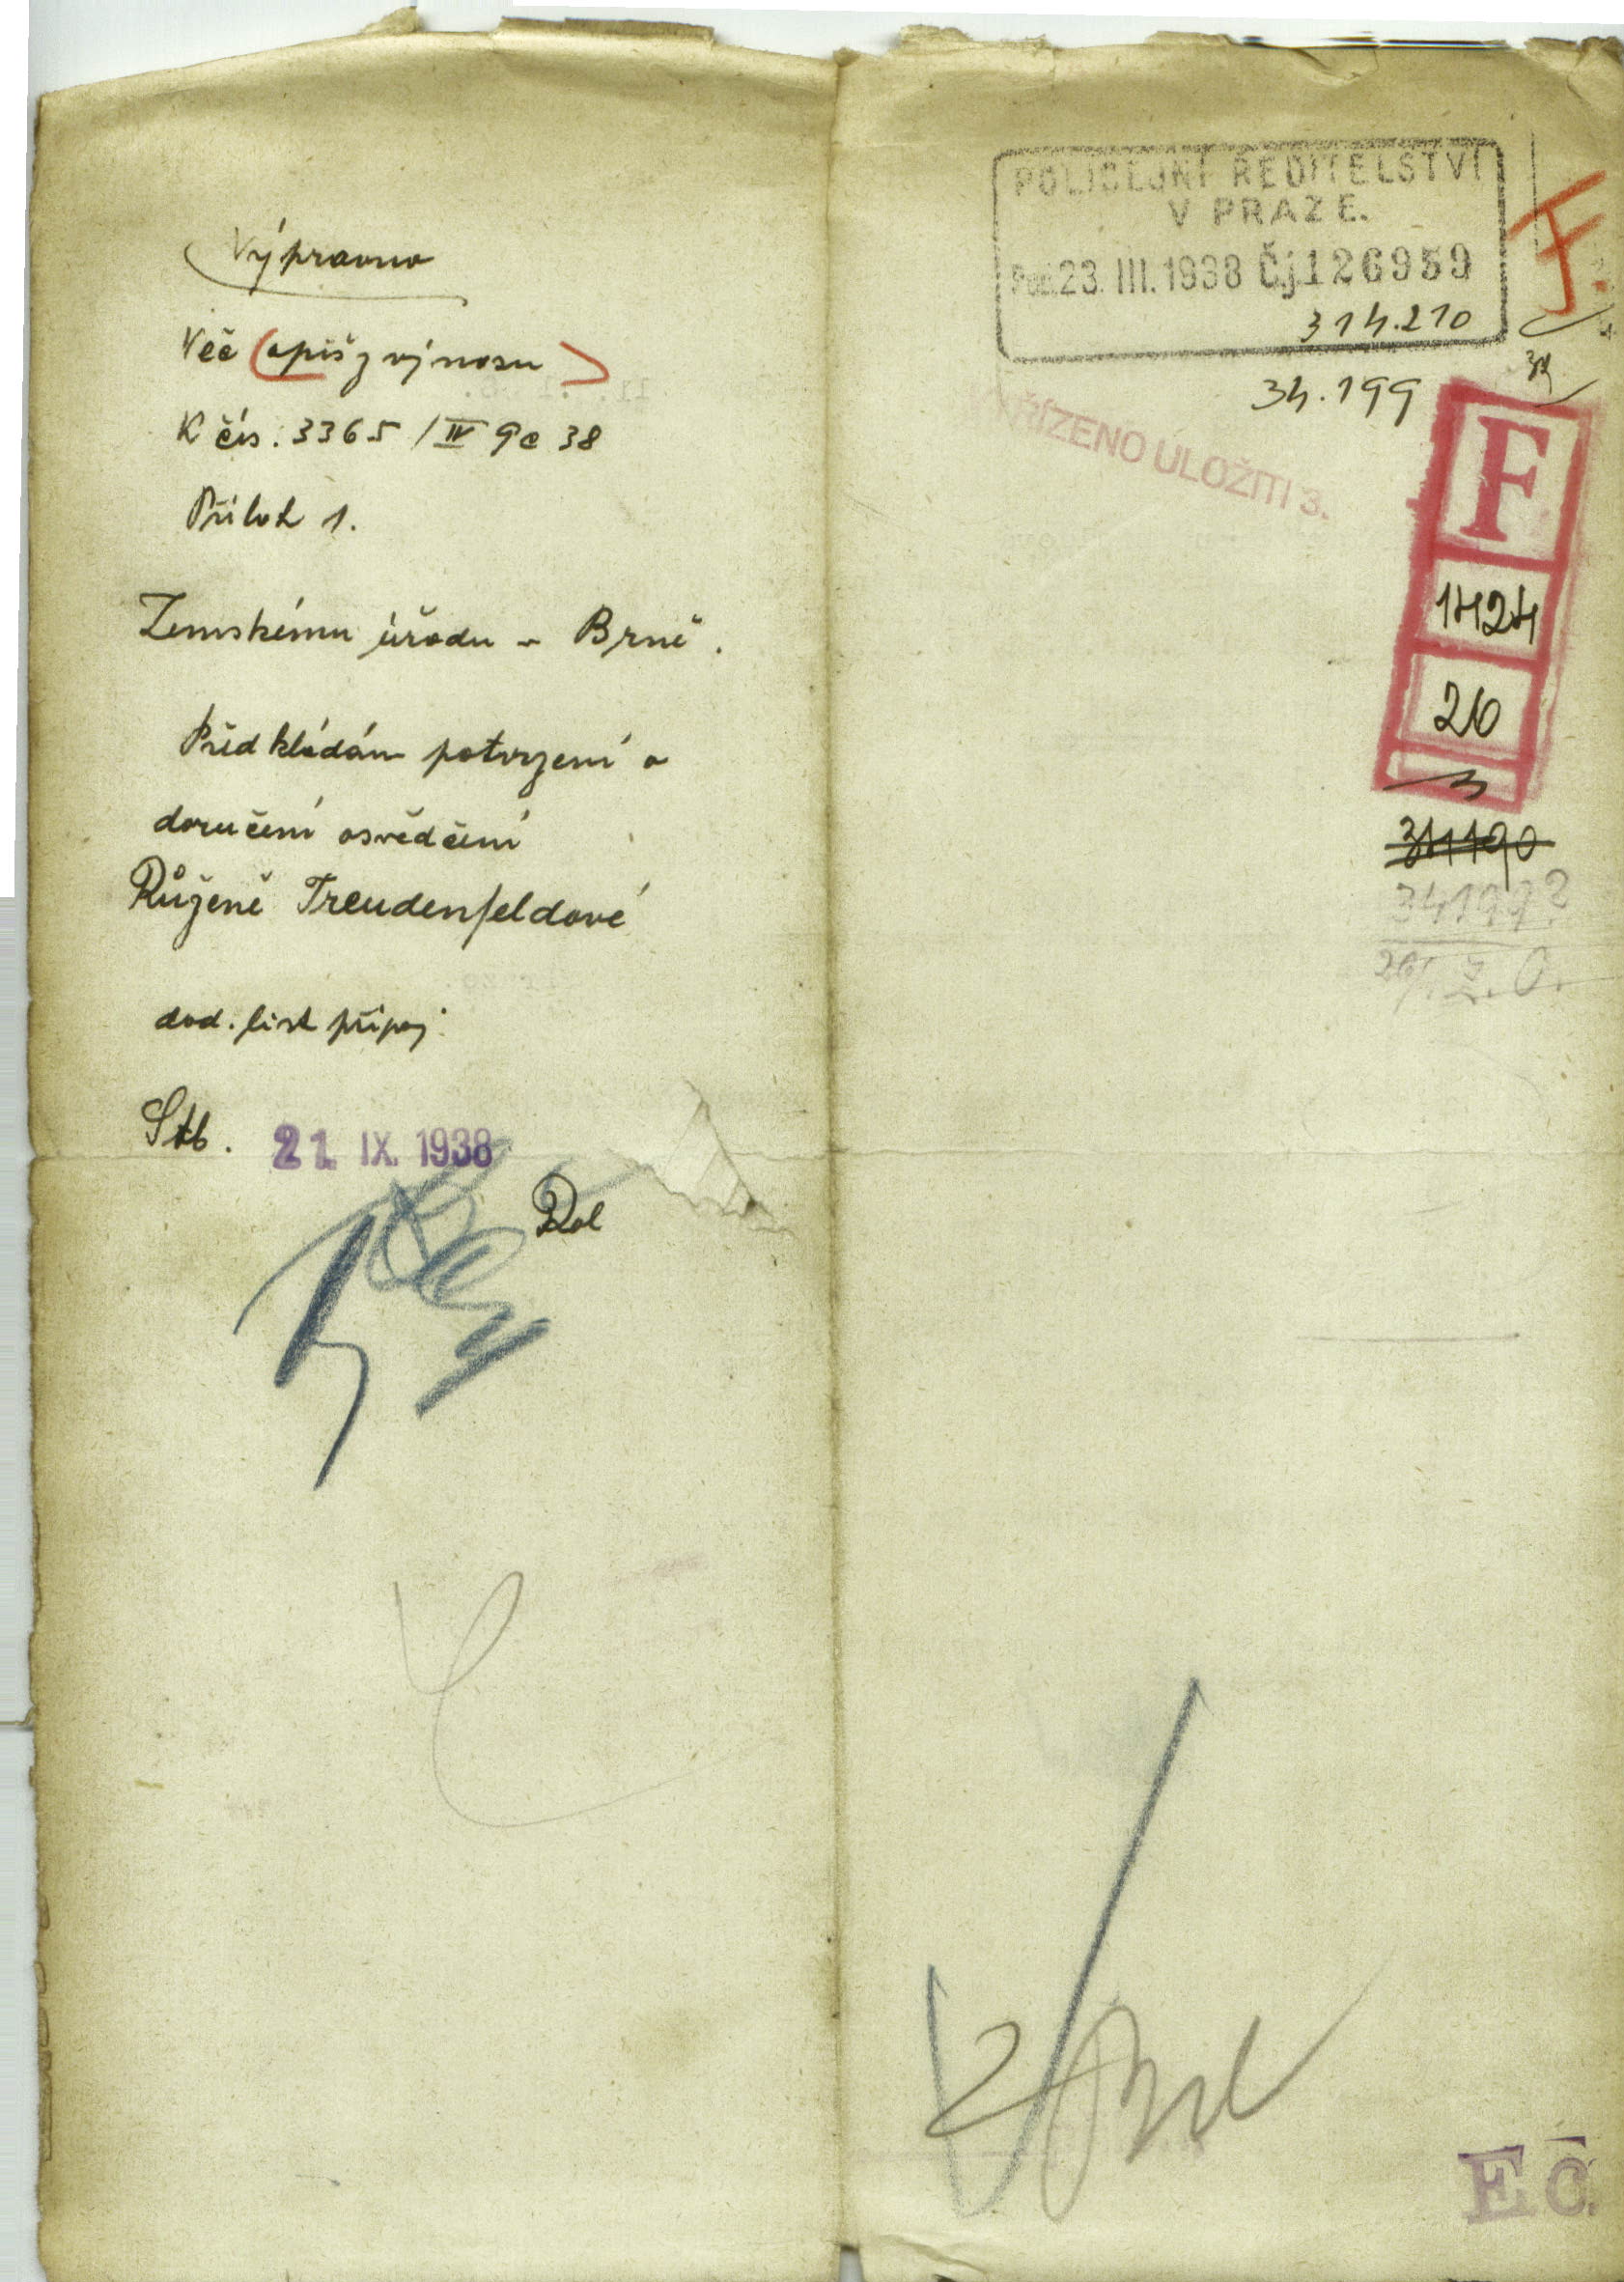 Výpravno
Věc (opiš z výnosu)
K čís. 3365 / IV 9c 38
Příloh 1.
Zemskému úřadu v Brně.
Předkládám potvrzení o
doručení osvědčení
Růženě Freudenfeldové
dod. list připoj.
Stb. 21. IX. 1938
Dol
POLICEJNÍ ŘEDITELSTVÍ
V PRAZE.
Pod. 23. III. 1938 Čj 126959
314.210
34.199
F
ŘÍZENO ULOŽITI 3.
F
1424
26
3
34190
34199?
EČ.